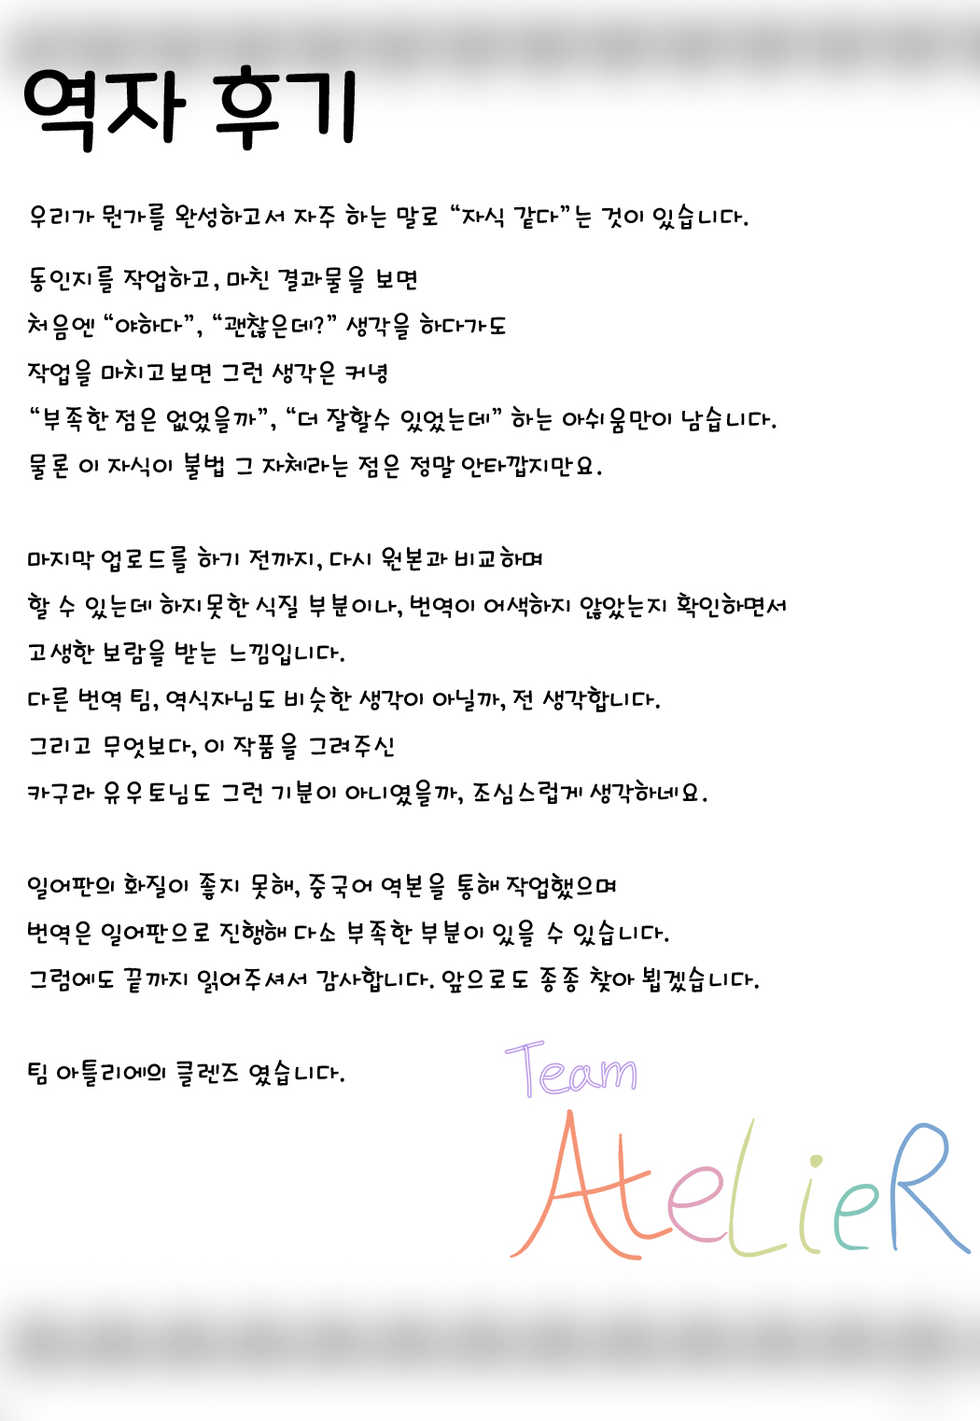 역자 후기
우리가 뭔가를 완성하고서 자주 하는 말로 “자식 같다”는 것이 있습니다.
동인지를 작업하고, 마친 결과물을 보면
처음엔 “야하다”, “괜찮은데?” 생각을 하다가도
작업을 마치고보면 그런 생각은 커녕
“부족한 점은 없었을까”, “더 잘할수 있었는데” 하는 아쉬움만이 남습니다.
물론 이 자식이 불법 그 자체라는 점은 정말 안타깝지만요.
마지막 업로드를 하기 전까지, 다시 원본과 비교하며
할 수 있는데 하지못한 식질 부분이나, 번역이 어색하지 않았는지 확인하면서
고생한 보람을 받는 느낌입니다.
다른 번역 팀, 역식자님도 비슷한 생각이 아닐까, 전 생각합니다.
그리고 무엇보다, 이 작품을 그려주신
카구라 유우토님도 그런 기분이 아니였을까, 조심스럽게 생각하네요.
일어판의 화질이 좋지 못해, 중국어 역본을 통해 작업했으며
번역은 일어판으로 진행해 다소 부족한 부분이 있을 수 있습니다.
그럼에도 끝까지 읽어주셔서 감사합니다. 앞으로도 종종 찾아 뵙겠습니다.
팀 아틀리에의 클렌즈 였습니다.
Team
AteLieR